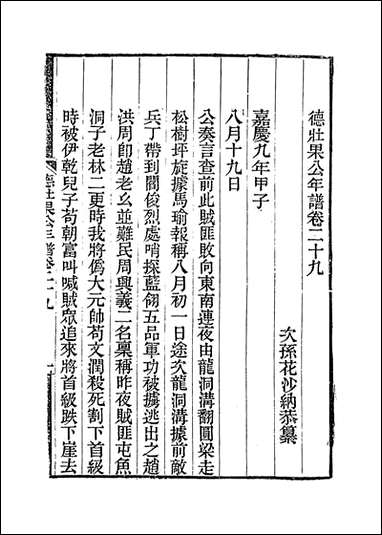 德壯果公年譜卷二十九
次孫花沙納恭纂
嘉慶九年甲子
八月十九日
公奏言查前此賊匪敗向東南連夜由龍洞溝翻圓梁走
松樹坪旋據馬瑜報稱八月初一日途次龍洞溝據前敵
兵丁帶到閻俊烈處哨探藍翎五品軍功被擄逃出之趙
洪周卽趙老幺並難民周興義二名稟稱昨夜賊匪屯魚
洞子老林二更時我將僞大元帥苟文潤殺死割下首級
時被伊乾兒子苟朝富叫喊賊眾追來將首級跌下崖去
德壯果公年譜卷二十九